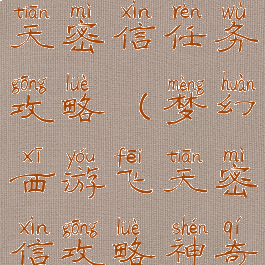 tiān mì xìn rèn wù
天密信任务
gōng lüè mèng huàn
攻略(梦幻
xī yóu fēi tiān mì
西游飞天密
xìn gōng lüè shén qí
信攻略神奇